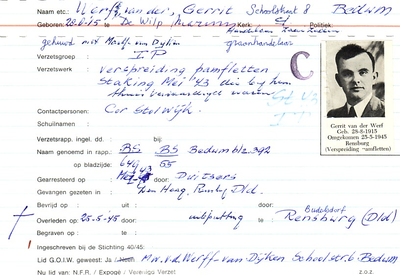 Naam etc.: Werff, van der, Gerrit Schoolstraat 8 Bedum
Geboren: 28-8-15 te De Wilp Marum Kerk: Politiek:
gehuwd met Martje van Dijken graanhandelaar
Verzetsgroep : L.P
Verzetswerk : Verspreiding pamfletten
Staking Mei '43 die by hem
thuis vervaardigd waren
C
Contactpersonen: Cor Stolwijk.
Schuilnamen :
Verzetsrapp. ingel. dd. : bij:
Naam genoemd in rapp.: BS BS Bedum blz. 392
op bladzijde: 649 55
Gearresteerd op : Mei '43 door: Duitsers
Gevangen gezeten in: Den Haag, Dld.
Bevrijd op : uit: door:
Overleden op : 25-5-45 door: uitputting te: Rensburg (Dld)
Büdelsdorf
Ingeschreven bij de Stichting 40/45:
Lid G.O.I.W. geweest: Ja /Neen Mw. v.d. Werff-van Dijken Schoolstr. 6 Bedum
Nu lid van: N.F.R. / Expogé / Verenigd Verzet z.o.z.
Gerrit van der Werf
Geb. 28-8-1915
Omgekomen 25-5-1945
Rensburg
(Verspreiding pamfletten)